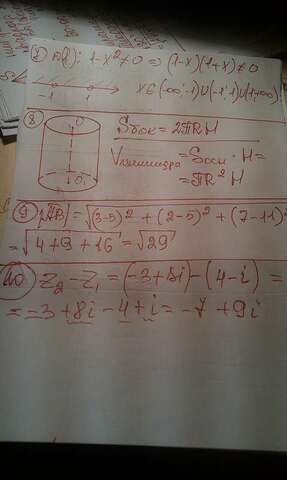 7) D(f): 1-x² ≠ 0 ⇒ (1-x)(1+x) ≠ 0
-1 1 x∈(-∞;-1)∪(-1;1)∪(1;+∞)
8) O Sбок = 2πRH
Vцилиндра = Sосн · H =
= πR²H
O₁
9) |AB| = √(3-5)² + (2-5)² + (7-11)²
= √4+9+16 = √29
10) Z₂ - Z₁ = (-3+8i) - (4-i) =
= -3 + 8i - 4 + i = -7 + 9i